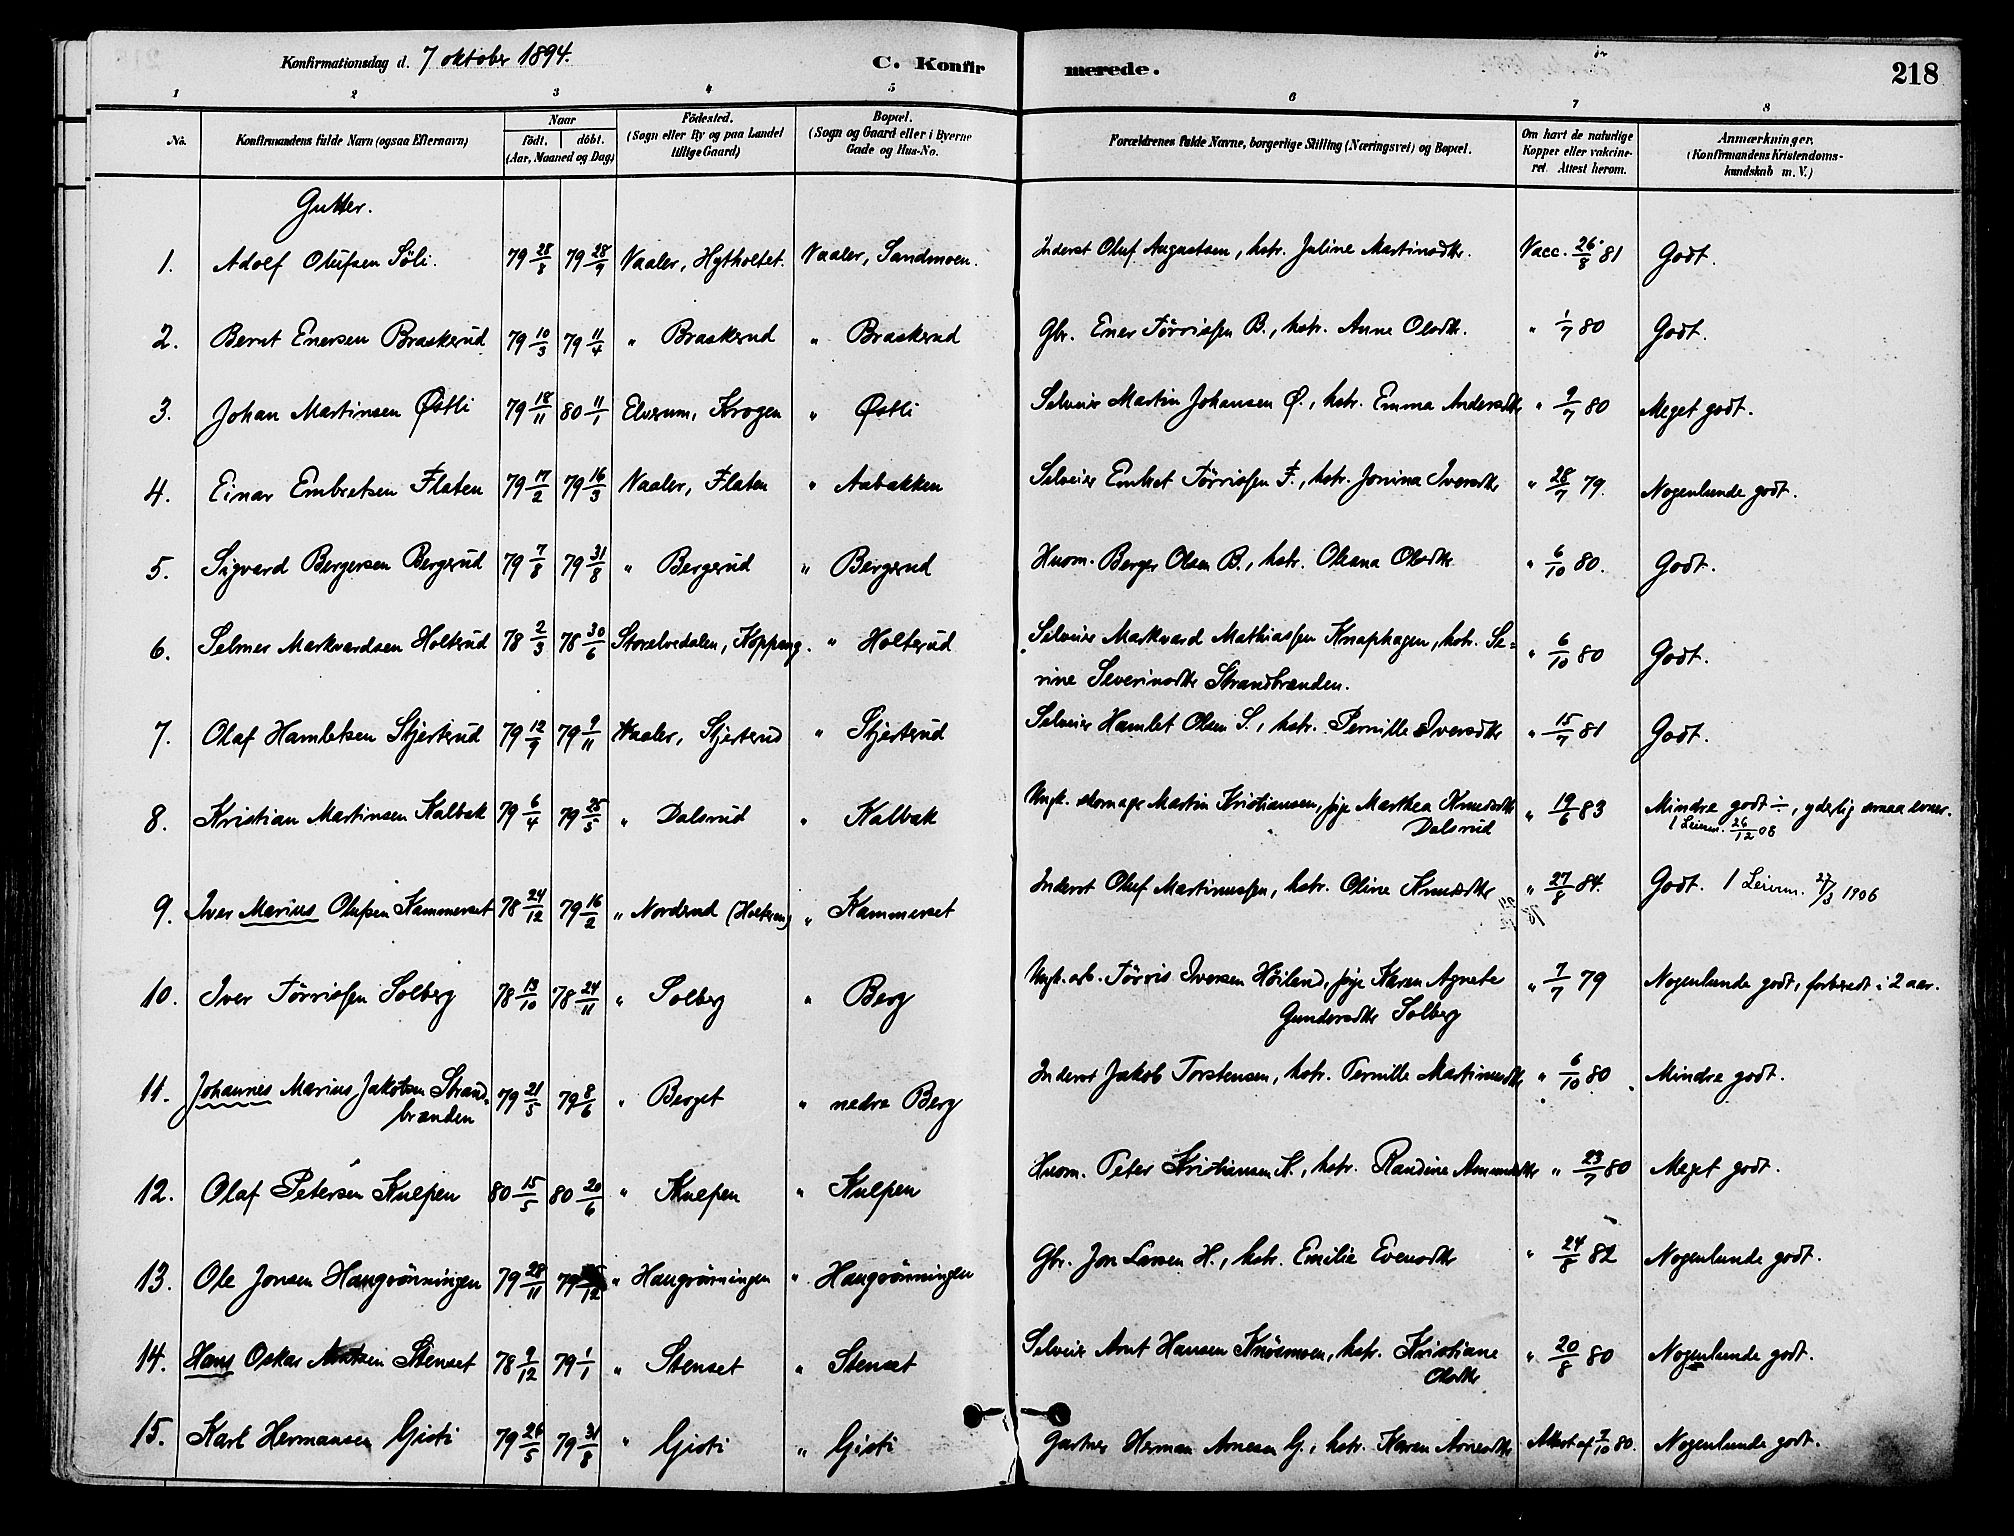 Konfirmationsdag d. 7 oktober 1894. C. Konfirmerede. 218
1 2 3 4 5 6 7 8
No. Konfirmandens fulde Navn (ogsaa Efternavn) Naar født, døbt. (Aar, Maaned og Dag) Fødested. (Sogn eller By og paa Landet tillige Gaard) Bopæl. (Sogn og Gaard eller i Byerne Gade og Hus-No. Forældrenes fulde Navne, borgerlige Stilling (Næringsvei) og Bopæl. Om havt de naturlige Kopper eller vakcineret. Attest herom. Anmærkninger. (Konfirmandens Kristendomskundskab m. V.)
Gutter.
1. Adolf Olufsen Søli. 79 28/8 79 28/9 Vaaler, Hytholtet. Vaaler, Sandmoen. Inderst Oluf Augustsen, hstr. Juline Martinsdtr. Vacc. 26/8 81 Godt.
2. Bernt Enersen Braskerud 79 10/3 79 11/4 " Braskerud " Braskerud Gbr. Ener Tørrissen B., hstr. Anne Olsdtr. " 1/7 80 Godt.
3. Johan Martinsen Østli 79 18/11 80 11/1 Elverum, Krogen " Østli Selveier Martin Johansen Ø., hstr. Emma Andersdtr " 9/7 80 Meget godt.
4. Einar Embretsen Flaten 79 17/2 79 16/3 Vaaler, Flaten " Aabakken Selveier Embret Tørrissen F., hstr. Jonina Iversdtr " 28/7 79. Nogenlunde godt.
5. Sigvard Bergersen Bergerud 79 7/8 79 31/8 " Bergerud " Bergerud Husm. Berger Olsen B., hstr. Oleana Olsdtr " 6/10 80. Godt.
6. Selmer Markvardsen Holterud 78 2/3 78 30/6 Storelvedalen, Koppang. " Holterud Selveier Markvard Mathiassen Knaphagen, hstr. Se=
rine Severinsdtr Strandbrænden. " 6/10 80 Godt.
7. Olaf Hamletsen Stjerterud 79 12/9 79 9/11 Vaaler, Stjerterud " Stjerterud Selveier Hamlet Olsen S., hstr. Pernille Iversdtr " 15/7 81 Godt.
8. Kristian Martinsen Kalbak 79 6/4 79 25/5 " Dalsrud " Kalbak Ungk. skomager Martin Kristiansen, pige Marthea Knudsdtr
Dalsrud " 19/6 83 Mindre godt ÷, yderlig smaa evner.
1 Leierm. 26/12 08
9. Iver Marius Olufsen Kammerset 78 24/12 79 16/2 " Nordsrud " Kammerset Inderst Oluf Martinussen, hstr. Oline Knudsdtr " 27/8 84. Godt. 1 Leierm. 27/3 1906
10. Iver Tørrissen Solberg 78 13/10 78 24/11 " Solberg " Berg Ungk. arb. Tørris Iversen Høiland, pige Karen Agnete
Gundersdtr Solberg " 7/7 79 Nogenlunde godt, forberedt i 2 aar.
11. Johannes Marius Jakobsen Strand-
brænden 79 21/5 79 8/6 " Berget " nedre Berg Inderst Jakob Torstensen, hstr. Pernille Martinusdtr " 6/10 80 Mindre godt.
12. Olaf Petersen Kulpen 80 15/5 80 20/6 " Kulpen " Kulpen Husm. Peter Kristiansen K., hstr. Randine Amundsdtr " 23/7 80 Meget godt.
13. Ole Jonsen Haugrønningen 79 28/11 79 " Haugrønningen " Haugrønningen Gbr. Jon Larsen H., hstr. Emilie Evensdtr " 24/8 82 Nogenlunde godt.
14. Hans Oskar Arntsen Stenset 78 9/12 79 1/1 " Stenset " Stenset Selveier Arnt Hansen Knøsmoen, hstr. Kristiane
Olsdtr " 20/8 80 Nogenlunde godt.
15. Karl Hermansen Gisti 79 26/5 79 31/8 " Gisti " Gisti Gartner Herman Arnesen G., hstr. Karen Arnesdtr Attest af 7/10 80. Nogenlunde godt.